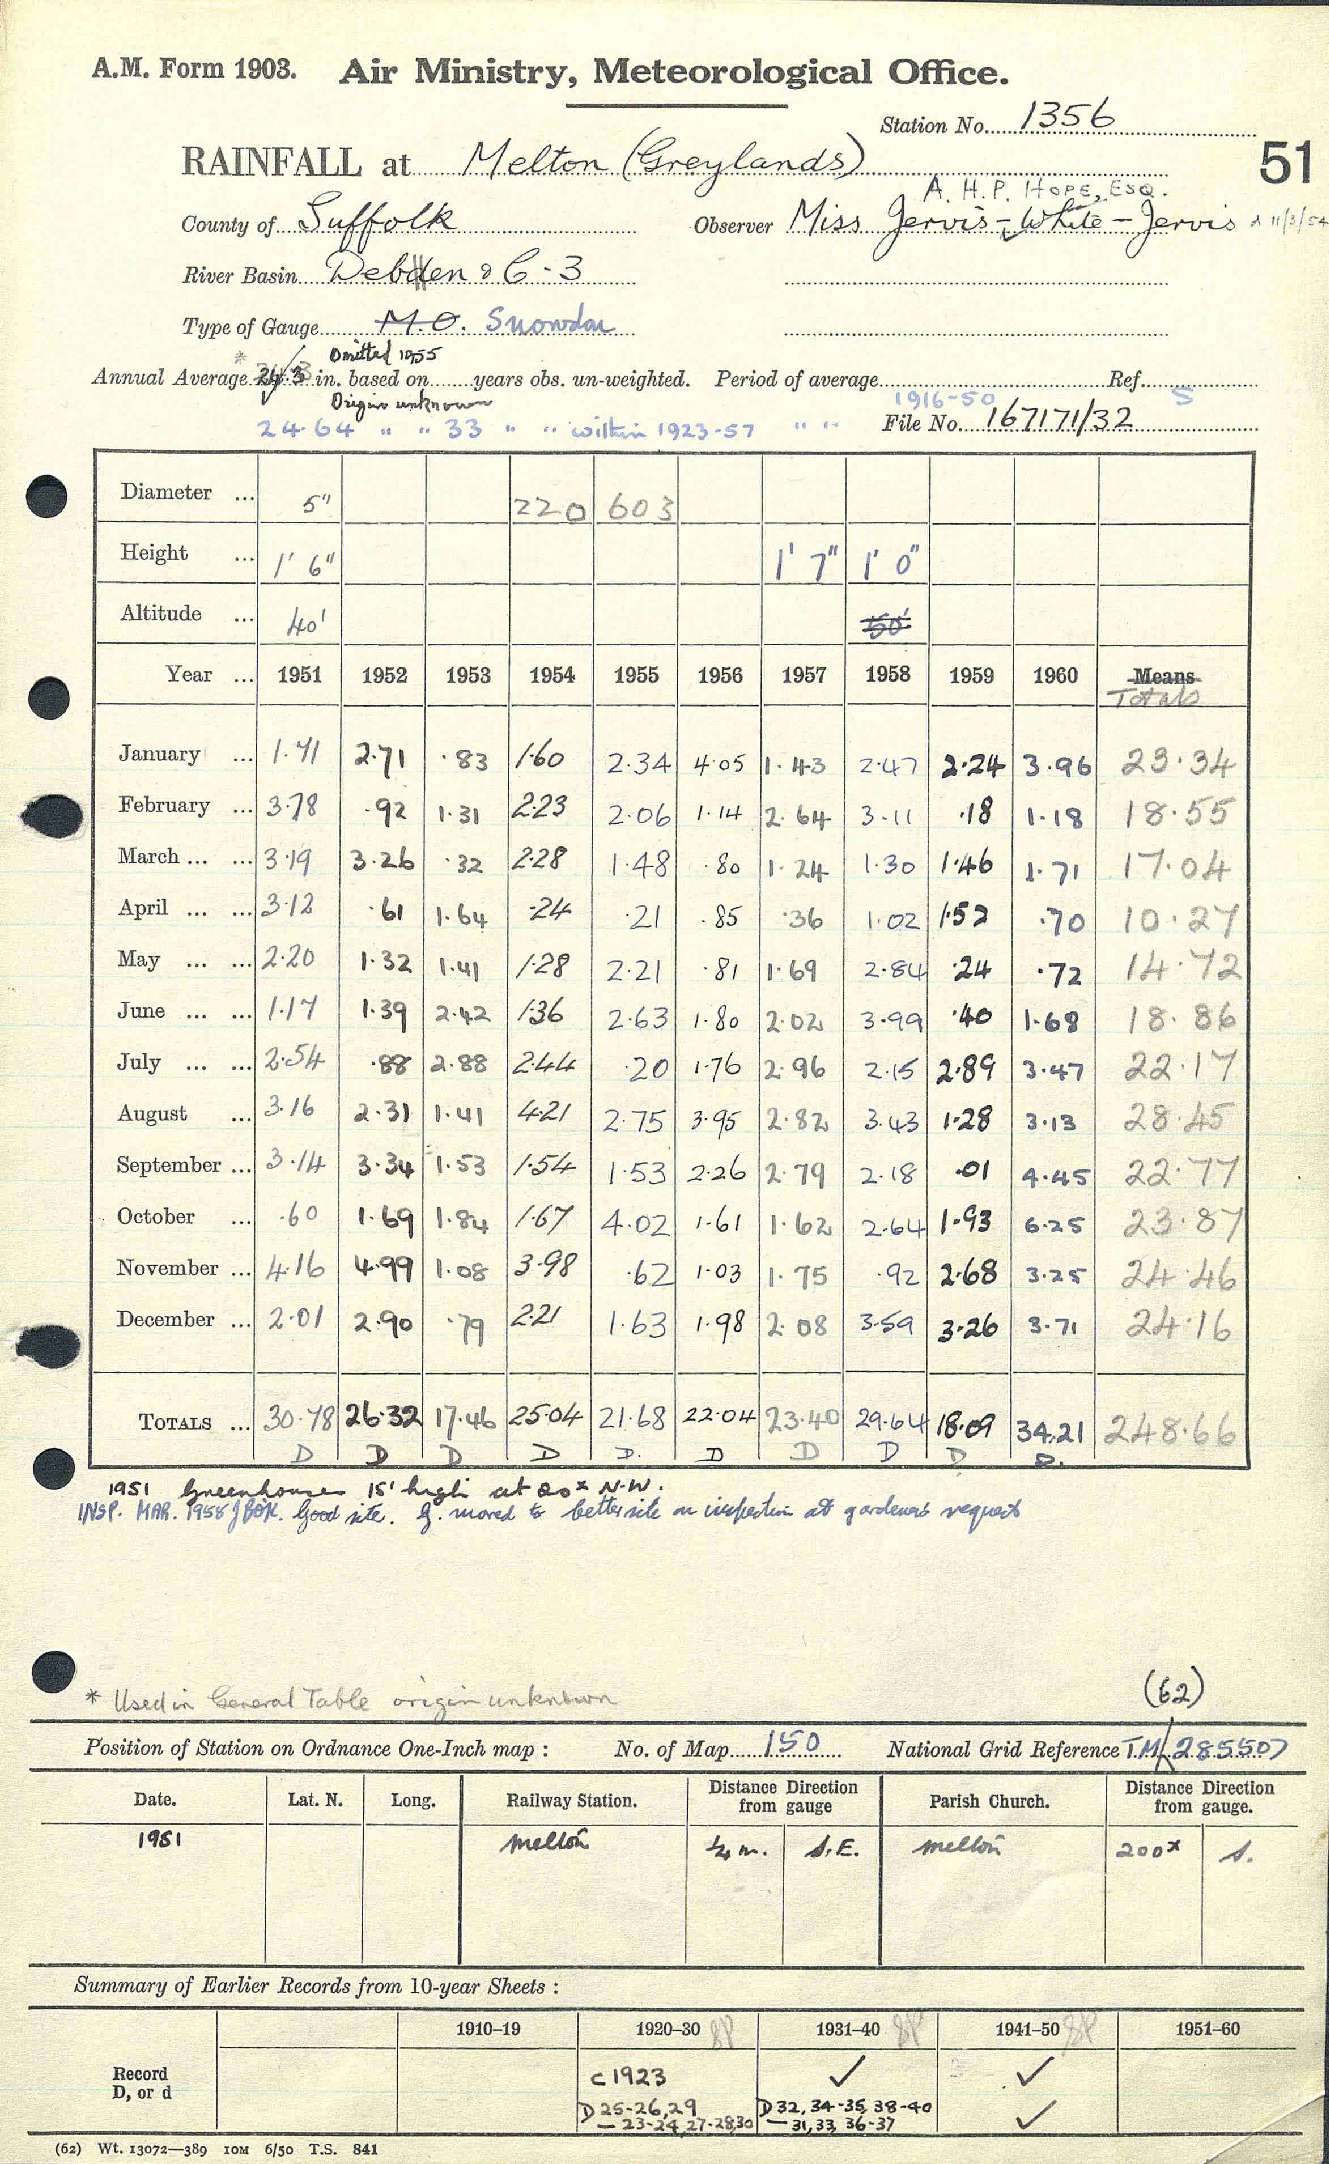 A.M. Form 1903. Air Ministry, Meteorological Office.
Station No. 1356
RAINFALL at Melton (Greylands) 51
A. H. P. HOPE, ESQ.
County of Suffolk Observer Miss Jervis-White-Jervis 11/3/54
River Basin Debden & C-3
Type of Gauge M.O. Snowdon
* Omitted 1955
Annual Average 24.3 in. based on ...... years obs. un-weighted. Period of average 1916-50 Ref. S
Origin unknown
24.64 " " 33 " " within 1923-57 " " File No. 167171/32
Diameter ... 5" 220 603
Height ... 1' 6" 1' 7" 1' 0"
Altitude ... 40' 50'
Year ... 1951 1952 1953 1954 1955 1956 1957 1958 1959 1960 Means
Totals
January ... 1.71 2.71 .83 1.60 2.34 4.05 1.43 2.47 2.24 3.96 23.34
February ... 3.78 .92 1.31 2.23 2.06 1.14 2.64 3.11 .18 1.18 18.55
March ... ... 3.19 3.26 .32 2.28 1.48 .80 1.24 1.30 1.46 1.71 17.04
April ... ... 3.12 .61 1.64 .24 .21 .85 .36 1.02 1.52 .70 10.27
May ... ... 2.20 1.32 1.41 1.28 2.21 .81 1.69 2.84 .24 .72 14.72
June ... ... 1.17 1.39 2.42 1.36 2.63 1.80 2.02 3.99 .40 1.68 18.86
July ... ... 2.54 .88 2.88 2.44 .20 1.76 2.96 2.15 2.89 3.47 22.17
August ... 3.16 2.31 1.41 4.21 2.75 3.95 2.82 3.43 1.28 3.13 28.45
September ... 3.14 3.34 1.53 1.54 1.53 2.26 2.79 2.18 .01 4.45 22.77
October ... .60 1.69 1.84 1.67 4.02 1.61 1.62 2.64 1.93 6.25 23.87
November ... 4.16 4.99 1.08 3.98 .62 1.03 1.75 .92 2.68 3.25 24.46
December ... 2.01 2.90 .79 2.21 1.63 1.98 2.08 3.59 3.26 3.71 24.16
TOTALS ... 30.78 26.32 17.46 25.04 21.68 22.04 23.40 29.64 18.09 34.21 248.66
D D D D D. D D D D D.
1951 Greenhouses 15' high at 20x N.W.
INSP. MAR. 1958 Good site. G. moved to better site on inspection at gardeners request
* Used in General Table origin unknown (62)
Position of Station on Ordnance One-Inch map : No. of Map 150 National Grid Reference TM/285507
Date. Lat. N. Long. Railway Station. Distance Direction from gauge Parish Church. Distance Direction from gauge.
1951 Melton ¼ m. S.E. Melton 200x S.
Summary of Earlier Records from 10-year Sheets :
1910-19 1920-30 SP 1931-40 SP 1941-50 SP 1951-60
Record c1923 ✓ ✓
D, or d D 25-26,29 D 32, 34-35, 38-40 ✓
— 23-24, 27-28,30 — 31,33, 36-37
(62) Wt. 13072—389 10M 6/50 T.S. 841